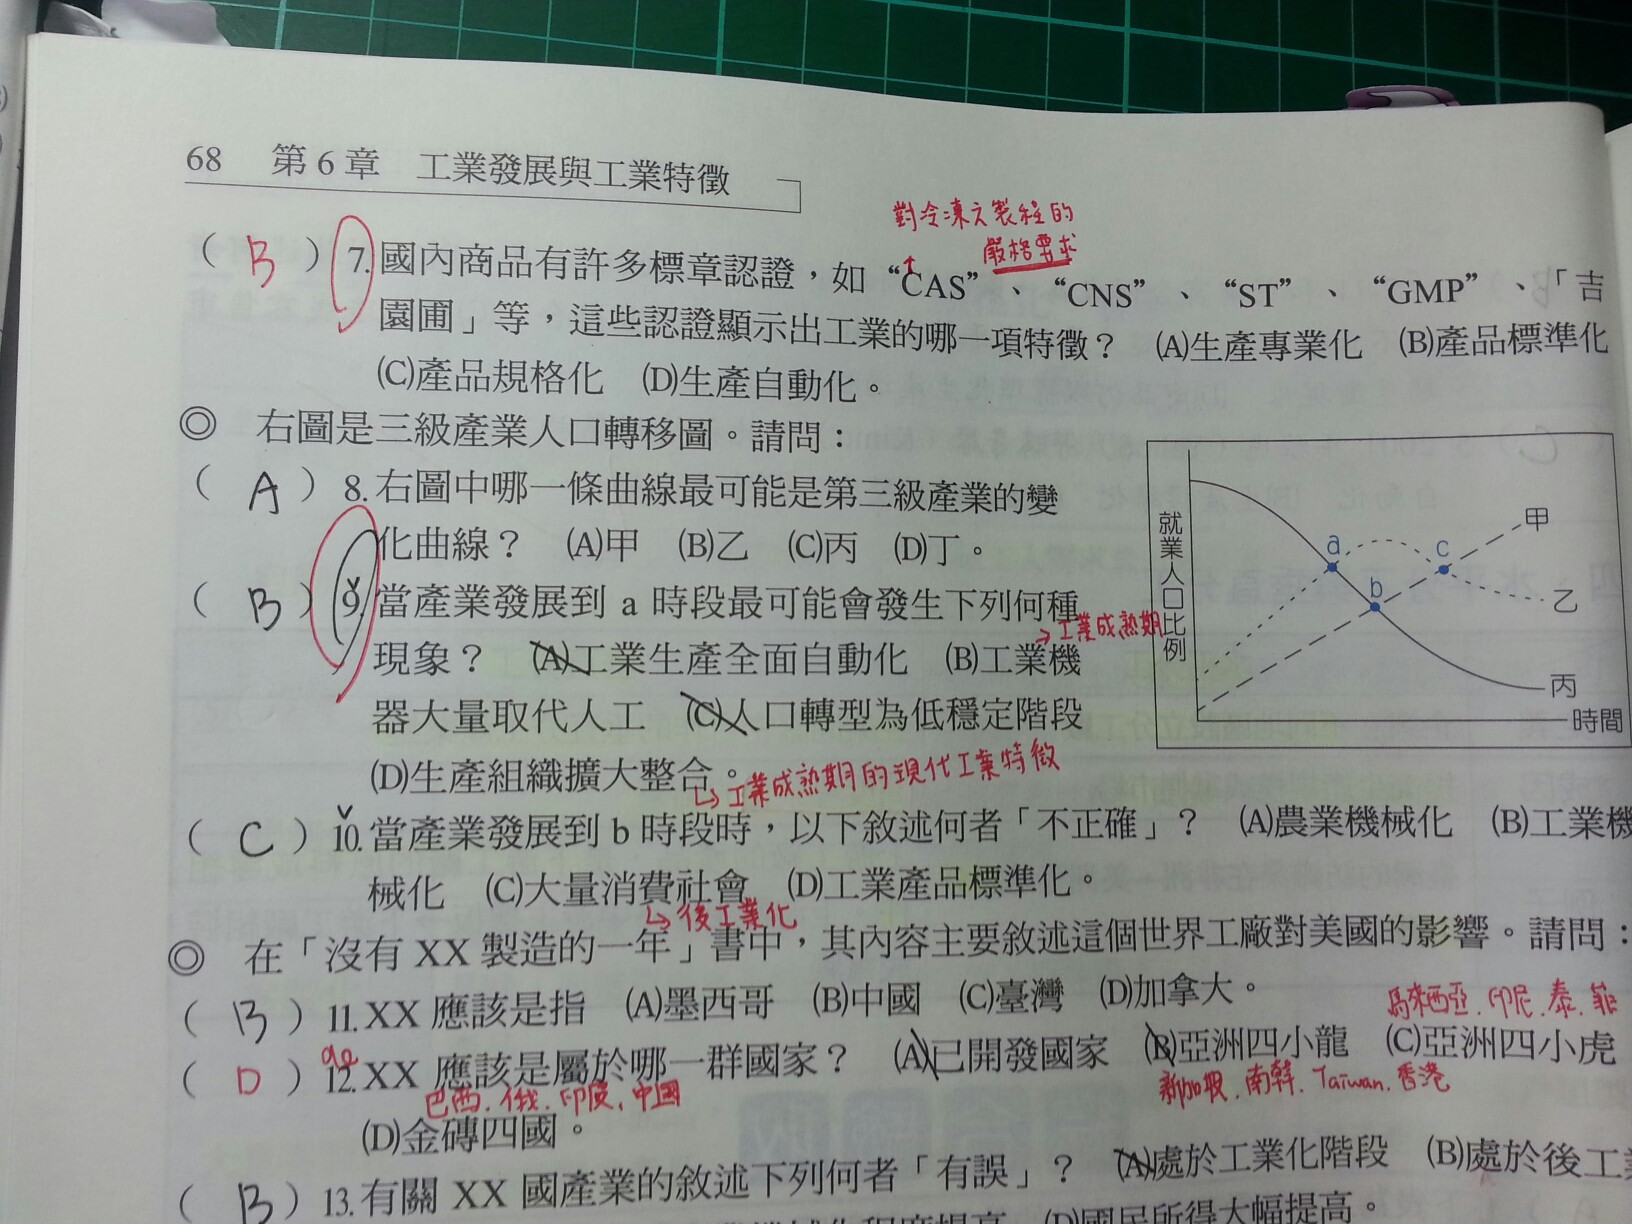 68 第6章 工業發展與工業特徵
對冷凍之製程的
嚴格要求
( B ) 7. 國內商品有許多標章認證,如“CAS”、“CNS”、“ST”、“GMP”、「吉
園圃」等,這些認證顯示出工業的哪一項特徵? (A)生產專業化 (B)產品標準化
(C)產品規格化 (D)生產自動化。
◎ 右圖是三級產業人口轉移圖。請問:
( A ) 8. 右圖中哪一條曲線最可能是第三級產業的變
化曲線? (A)甲 (B)乙 (C)丙 (D)丁。
( B ) 9. 當產業發展到 a 時段最可能會發生下列何種
現象? (A)工業生產全面自動化 (B)工業機
→工業成熟期
器大量取代人工 (C)人口轉型為低穩定階段
(D)生產組織擴大整合。
↳工業成熟期的現代工業特徵
就業人口比例
a
b
c
甲
乙
丙
時間
( C ) 10. 當產業發展到 b 時段時,以下敘述何者「不正確」? (A)農業機械化 (B)工業機
械化 (C)大量消費社會 (D)工業產品標準化。
↳後工業化
◎ 在「沒有 XX 製造的一年」書中,其內容主要敘述這個世界工廠對美國的影響。請問:
( B ) 11. XX 應該是指 (A)墨西哥 (B)中國 (C)臺灣 (D)加拿大。
馬來西亞.印尼.泰.菲
( D ) 12. XX 應該是屬於哪一群國家? (A)已開發國家 (B)亞洲四小龍 (C)亞洲四小虎
巴西.俄.印度.中國
新加坡.南韓.Taiwan.香港
(D)金磚四國。
( B ) 13. 有關 XX 國產業的敘述下列何者「有誤」? (A)處於工業化階段 (B)處於後工
(D)國民所得大幅提高。